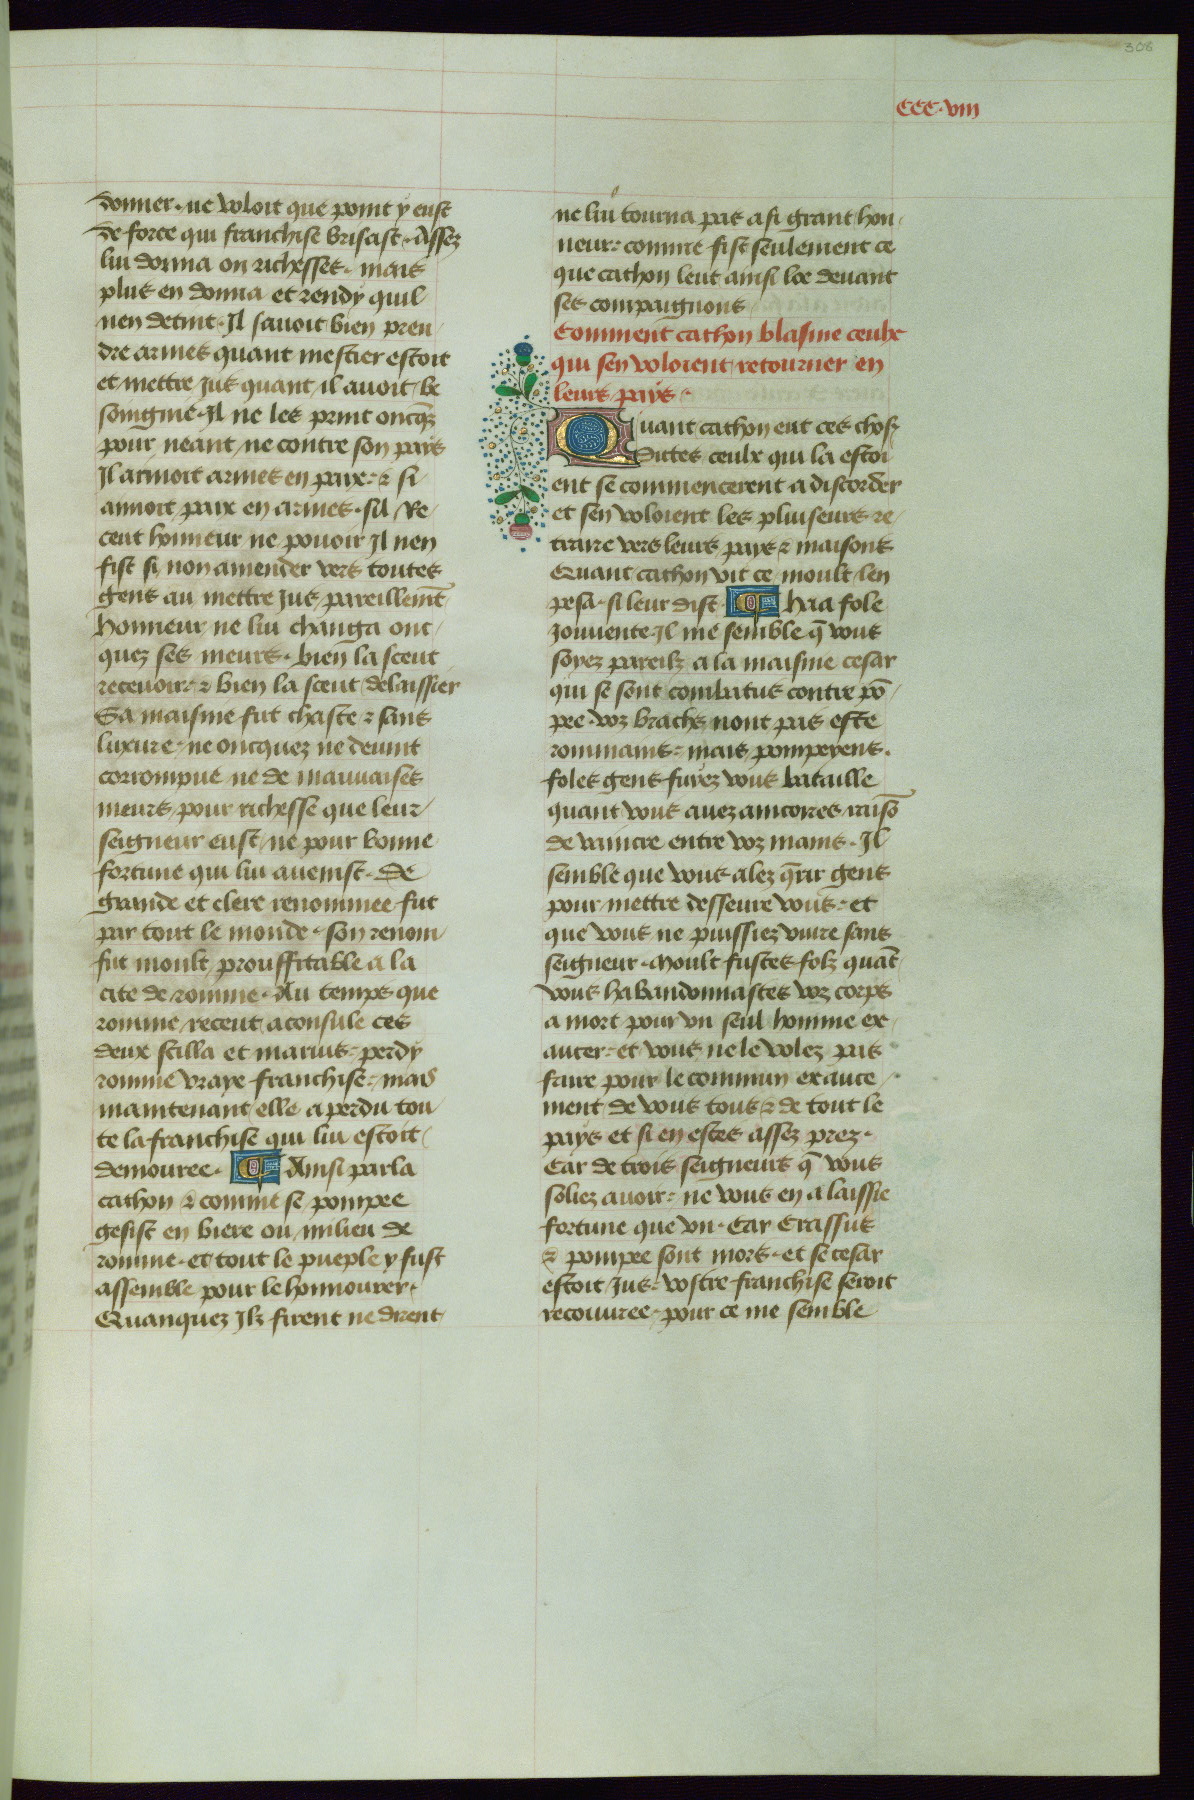 308
CCC.viii
donner. ne voloit que point y eust
de force qui franchise brisast. Assez
lui donna on richesses. mais
plus en donna et rendy quil
nen detint. Il sauoit bien pren
dre armes quant mestier estoit
et mettre Jus quant il auoit be
soingnie. Il ne les print oncqz
pour neant ne contre son pays
Il aimoit armes en paix. & si
aimoit paix en armes. sil Re
ceut honneur ne pouoir Il nen
fist si non amender vers toutes
gens au mettre Jus pareillemēt
honneur ne lui changa onc
quez ses meurs. bien la sceut
receuoir. & bien la sceut delaissier
Sa maisnie fut chaste & sans
luxure. ne oncquez ne deuint
corrompue ne de mauuaises
meurs pour richesse que leur
seigneur eust ne pour bonne
fortune qui lui auenist. De
grande et clere renommee fut
par tout le monde. son renom
fut moult prouffitable a la
cite de romme. Au temps que
romme receut a consule ces
deux scilla et marius. perdy
romme vraye franchise. mais
maintenant elle a perdu tou
te la franchise qui lui estoit
demouree. Ainsi parla
cathon & comme se pompee
gesist en biere ou milieu de
romme. et tout le pueple y fust
assemble pour le honnourer.
Quanquez Ilz firent ne dirent
ne lui tourna pas a si grant hon
neur. comme fist seulement ce
que cathon leut ainsi loe deuant
ses compaignons
Comment cathon blasme ceulx
qui sen voloient retourner en
leurs pays.
Quant cathon eut ces chosz
Dittes ceulx qui la estoi
ent se commencerent a discorder
et sen voloient les pluiseurs re
traire vers leurs pays & maisons
Quant cathon vit ce moult len
pesa. si leur dist. haa fole
Jouuente. Il me semble q̄ vous
soyez pareilz a la maisnie cesar
qui se sont combatus contre pō
pee. voz brachs nont pas este
rommains. mais pompeyens.
foles gens fuyez vous bataille
quant vous auez aincoires raisō
de vaincre entre voz mains. Il
semble que vous alez q̄rir gens
pour mettre desseure vous. et
que vous ne puissiez viure sans
seigneur. moult fustes folz quāt
vous habandonnastes voz corps
a mort pour vn seul homme ex
aucer. et vous ne le volez pas
faire pour le commun exauce
ment de vous tous & de tout le
pays et si en estes assez prez.
Car de trois seigneurs q̄ vous
soliez auoir. ne vous en a laissie
fortune que vn. Car Crassus
& pompee sont mors. et se cesar
estoit Jus. vostre franchise seroit
recouuree. pour ce me semble